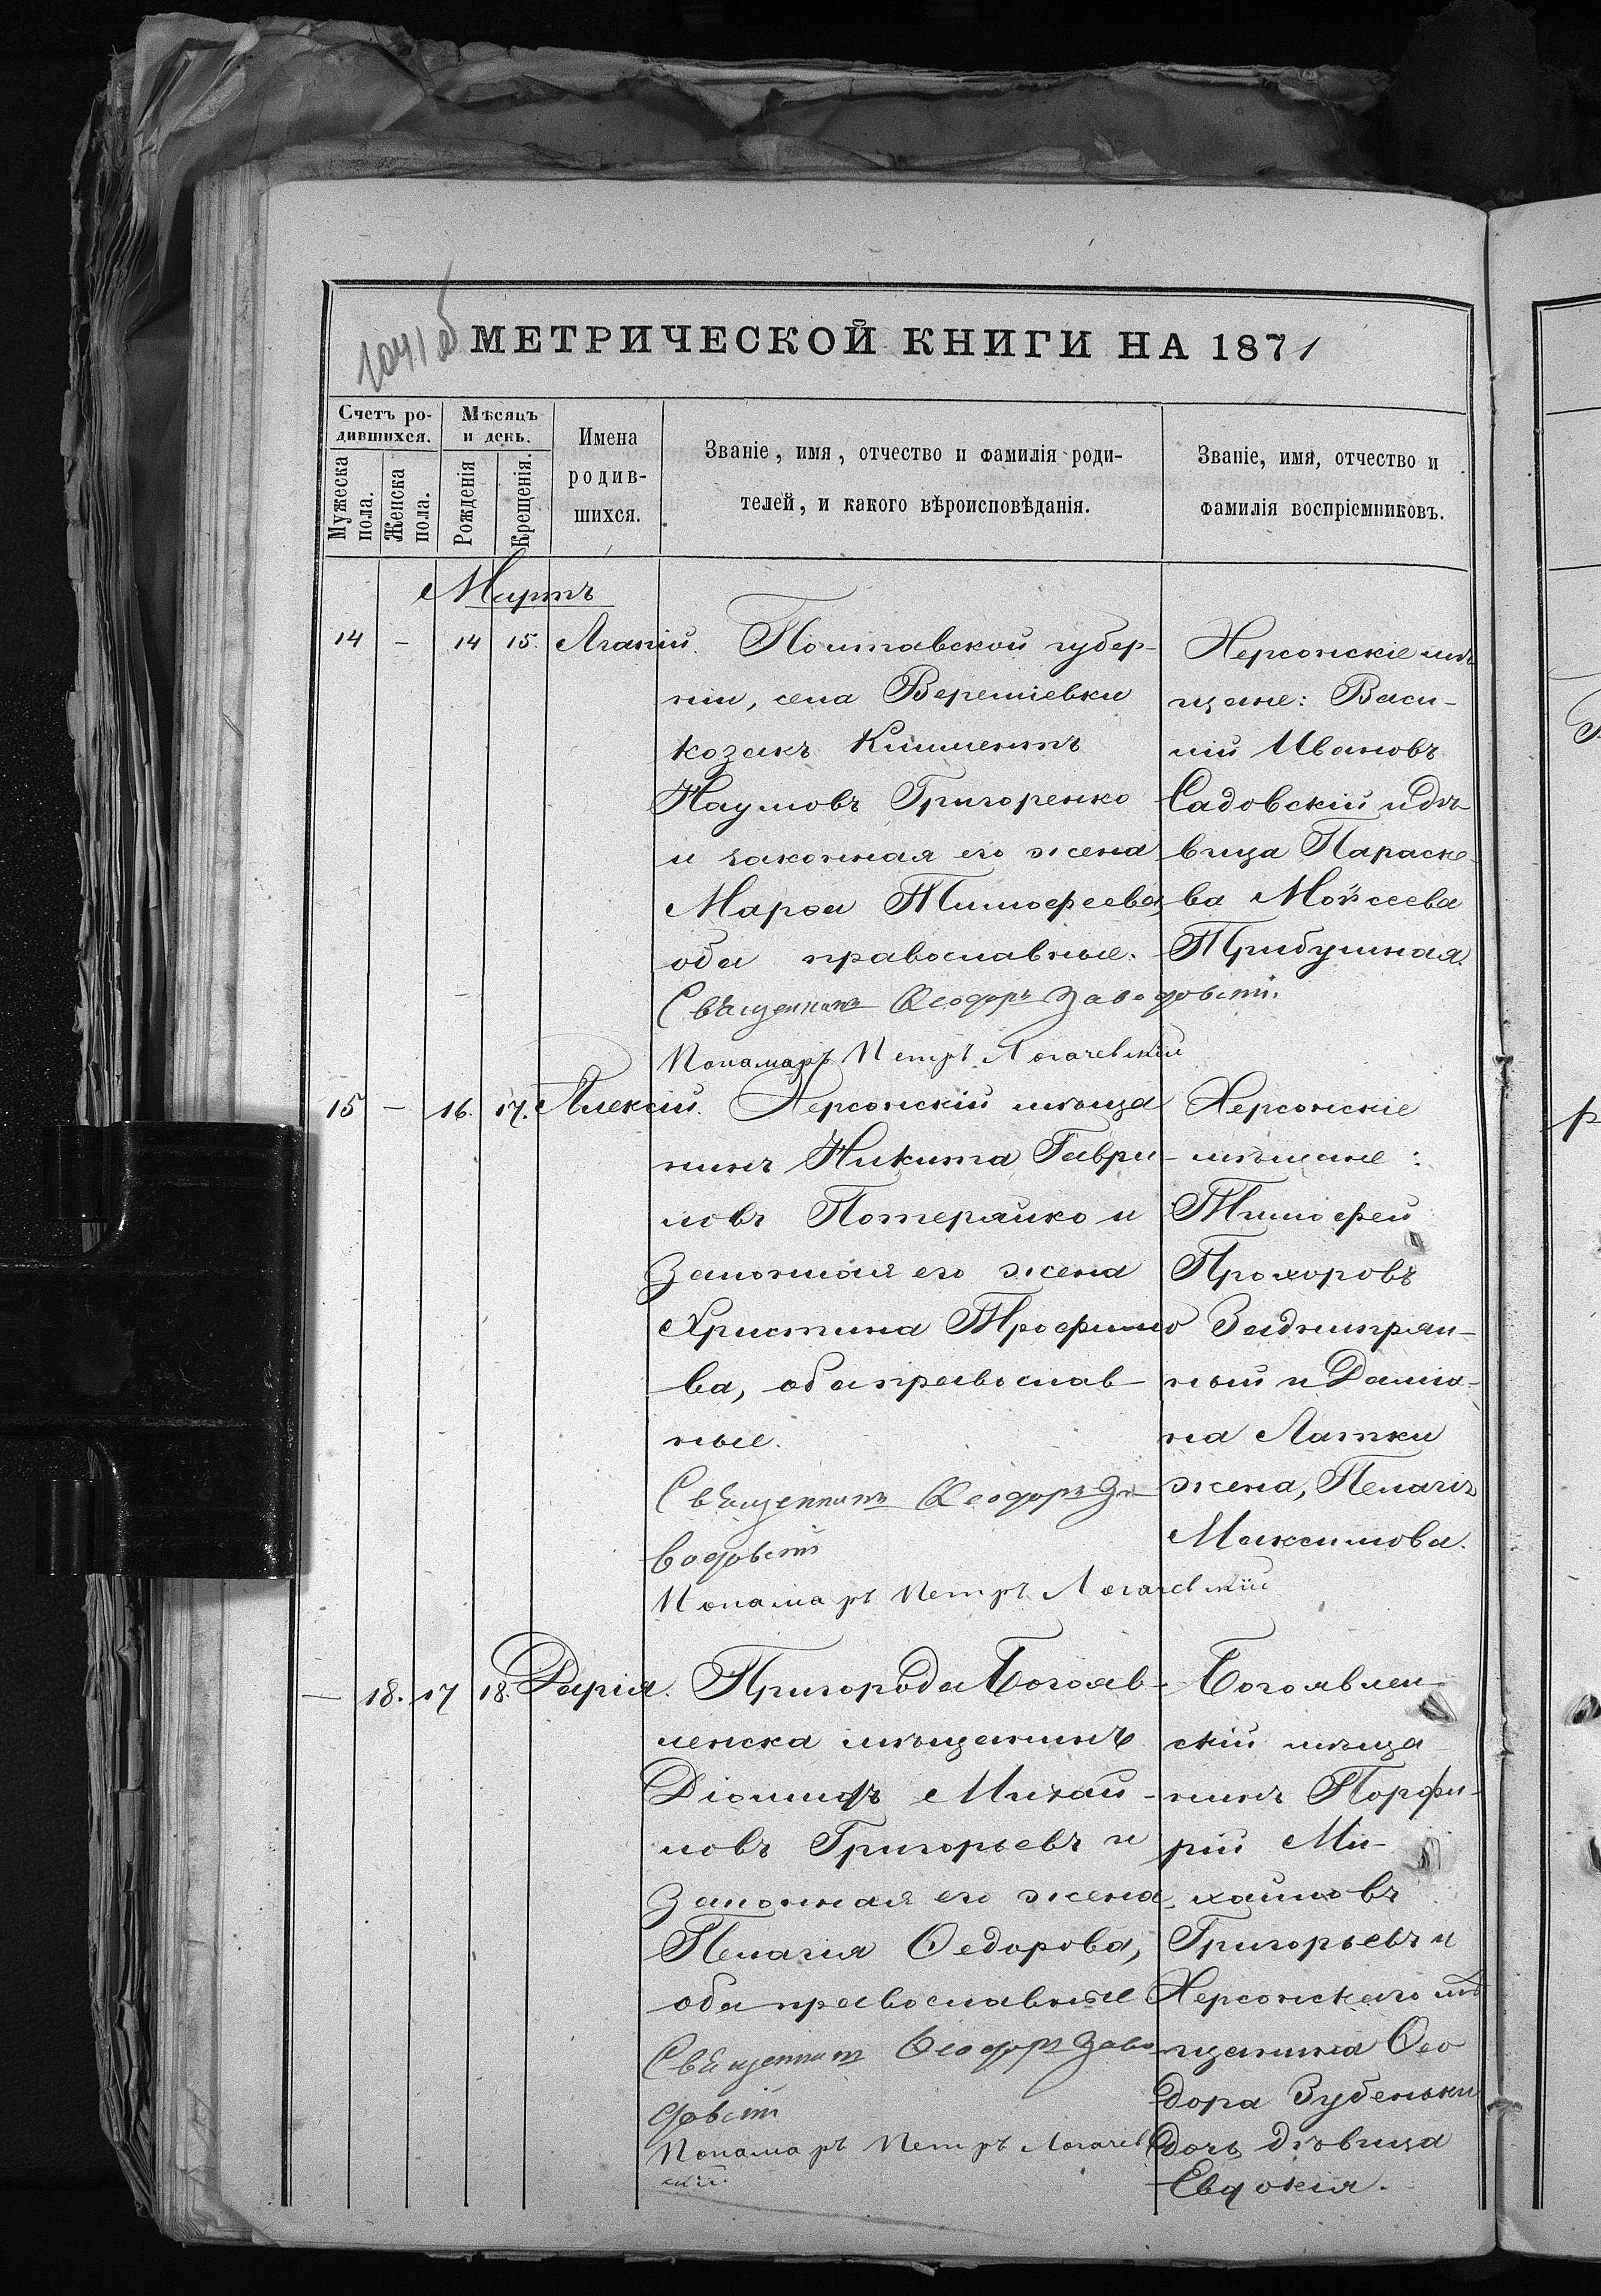 1041 об
МЕТРИЧЕСКОЙ КНИГИ НА 1871
Счетъ ро-
дившихся.
Мужеска пола.
Женска пола.
Мѣсяцъ
и день.
Рожденія
Крещенія.
Имена
родив-
шихся.
Званіе, имя, отчество и фамилія роди-
телей, и какого вѣроисповѣданія.
Званіе, имя, отчество и
фамилія воспріемниковъ.
Мартъ
14 – 14 15. Агапій.
Полтавской губер-
ніи, села Веремiевки
козакъ Климентъ
Наумовъ Григоренко
и законная его жена
Марѳа Тимофеева,
оба православные.
Священникъ Ѳеодоръ Заводовскій
Пономарь Петръ Логачевскій
Херсонскіе мѣ
щане: Васи-
лій Ивановъ
Садовскій и дѣ-
вица Параске-
ва Мойсеева
Трибушная.
15 – 16. 17. Алексій.
Херсонскій мѣща
нинъ Никита Гаври-
ловъ Потеряйко и
законная его жена
Христина Трофимо
ва, оба православ-
ные.
Священникъ Ѳеодоръ За
водовскій
Пономарь Петръ Логачевскій
Херсонскіе
мѣщане:
Тимофей
Прохоровъ
Заднипрян-
ный и Даміа-
на Латки
жена, Пелагія
Максимова.
– 18. 17 18. Дарія.
Пригорода Богояв-
ленска мѣщанинъ
Діомидъ Михай-
ловъ Григорьевъ и
законная его жена
Пелагія Ѳедорова,
оба православные
Священникъ Ѳеодоръ Заво
довскій
Пономарь Петръ Логачев
скій
Богоявлен-
скій мѣща-
нинъ Порфи-
рій Ми-
хайловъ
Григорьевъ и
Херсонскаго мѣ
щанина Ѳео
дора Зубеньки
дочь дѣвица
Евдокія.